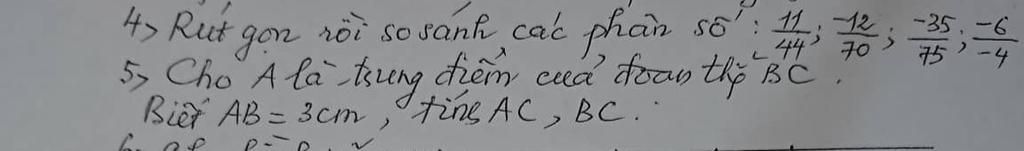 4> Rút gọn rồi so sánh các phân số : 11/44 ; -12/70 ; -35/75 ; -6/-4
5> Cho A là trung điểm của đoạn thg BC .
Biết AB = 3cm , tính AC , BC .